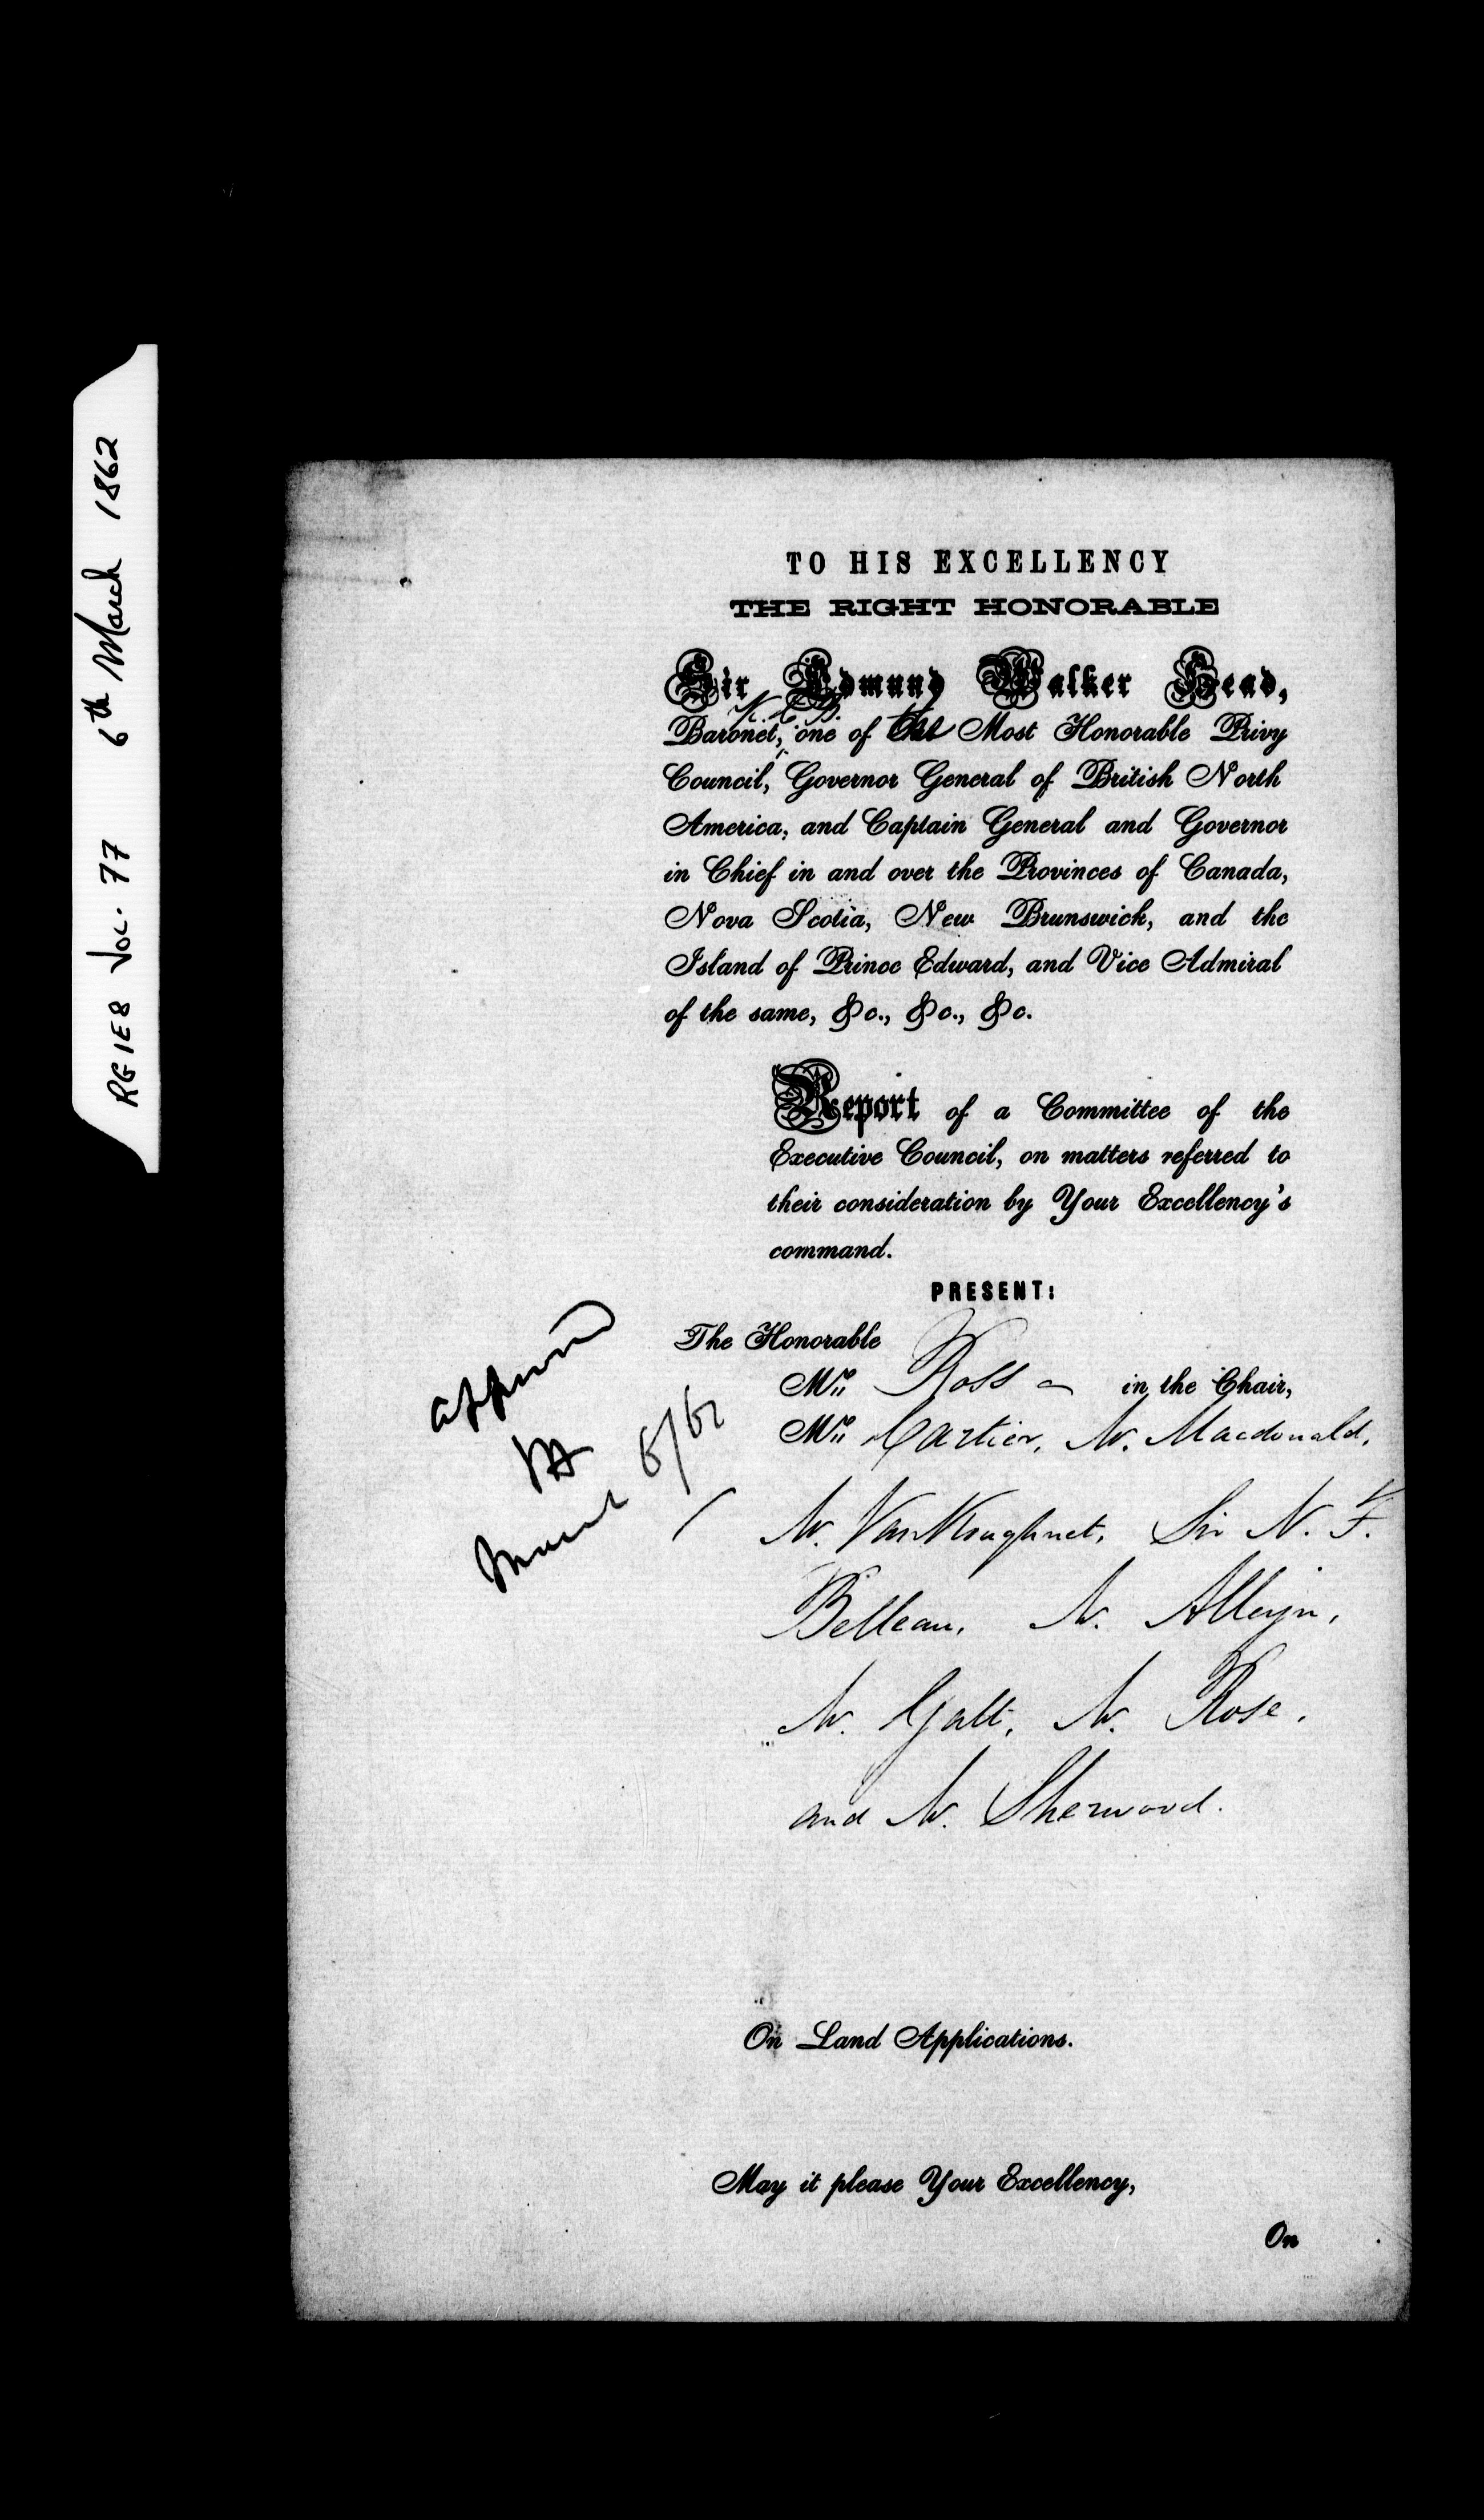 RG 1 E8 Vol. 77 6th March 1862
TO HIS EXCELLENCY
THE RIGHT HONORABLE
Sir Edmund Walker Head,
K.C.B.
Baronet, one of the Most Honorable Privy
Council, Governor General of British North
America, and Captain General and Governor
in Chief in and over the Provinces of Canada,
Nova Scotia, New Brunswick, and the
Island of Prince Edward, and Vice Admiral
of the same, &c., &c., &c.
Report of a Committee of the
Executive Council, on matters referred to
their consideration by Your Excellency's
command.
PRESENT:
The Honorable
Mr. Ross in the Chair,
Mr. Cartier, Mr. Macdonald,
Mr. VanKoughnet, Sir N. F.
Belleau, Mr. Alleyn,
Mr. Galt, Mr. Rose,
and Mr. Sherwood.
approved
March
On Land Applications.
May it please Your Excellency,
On